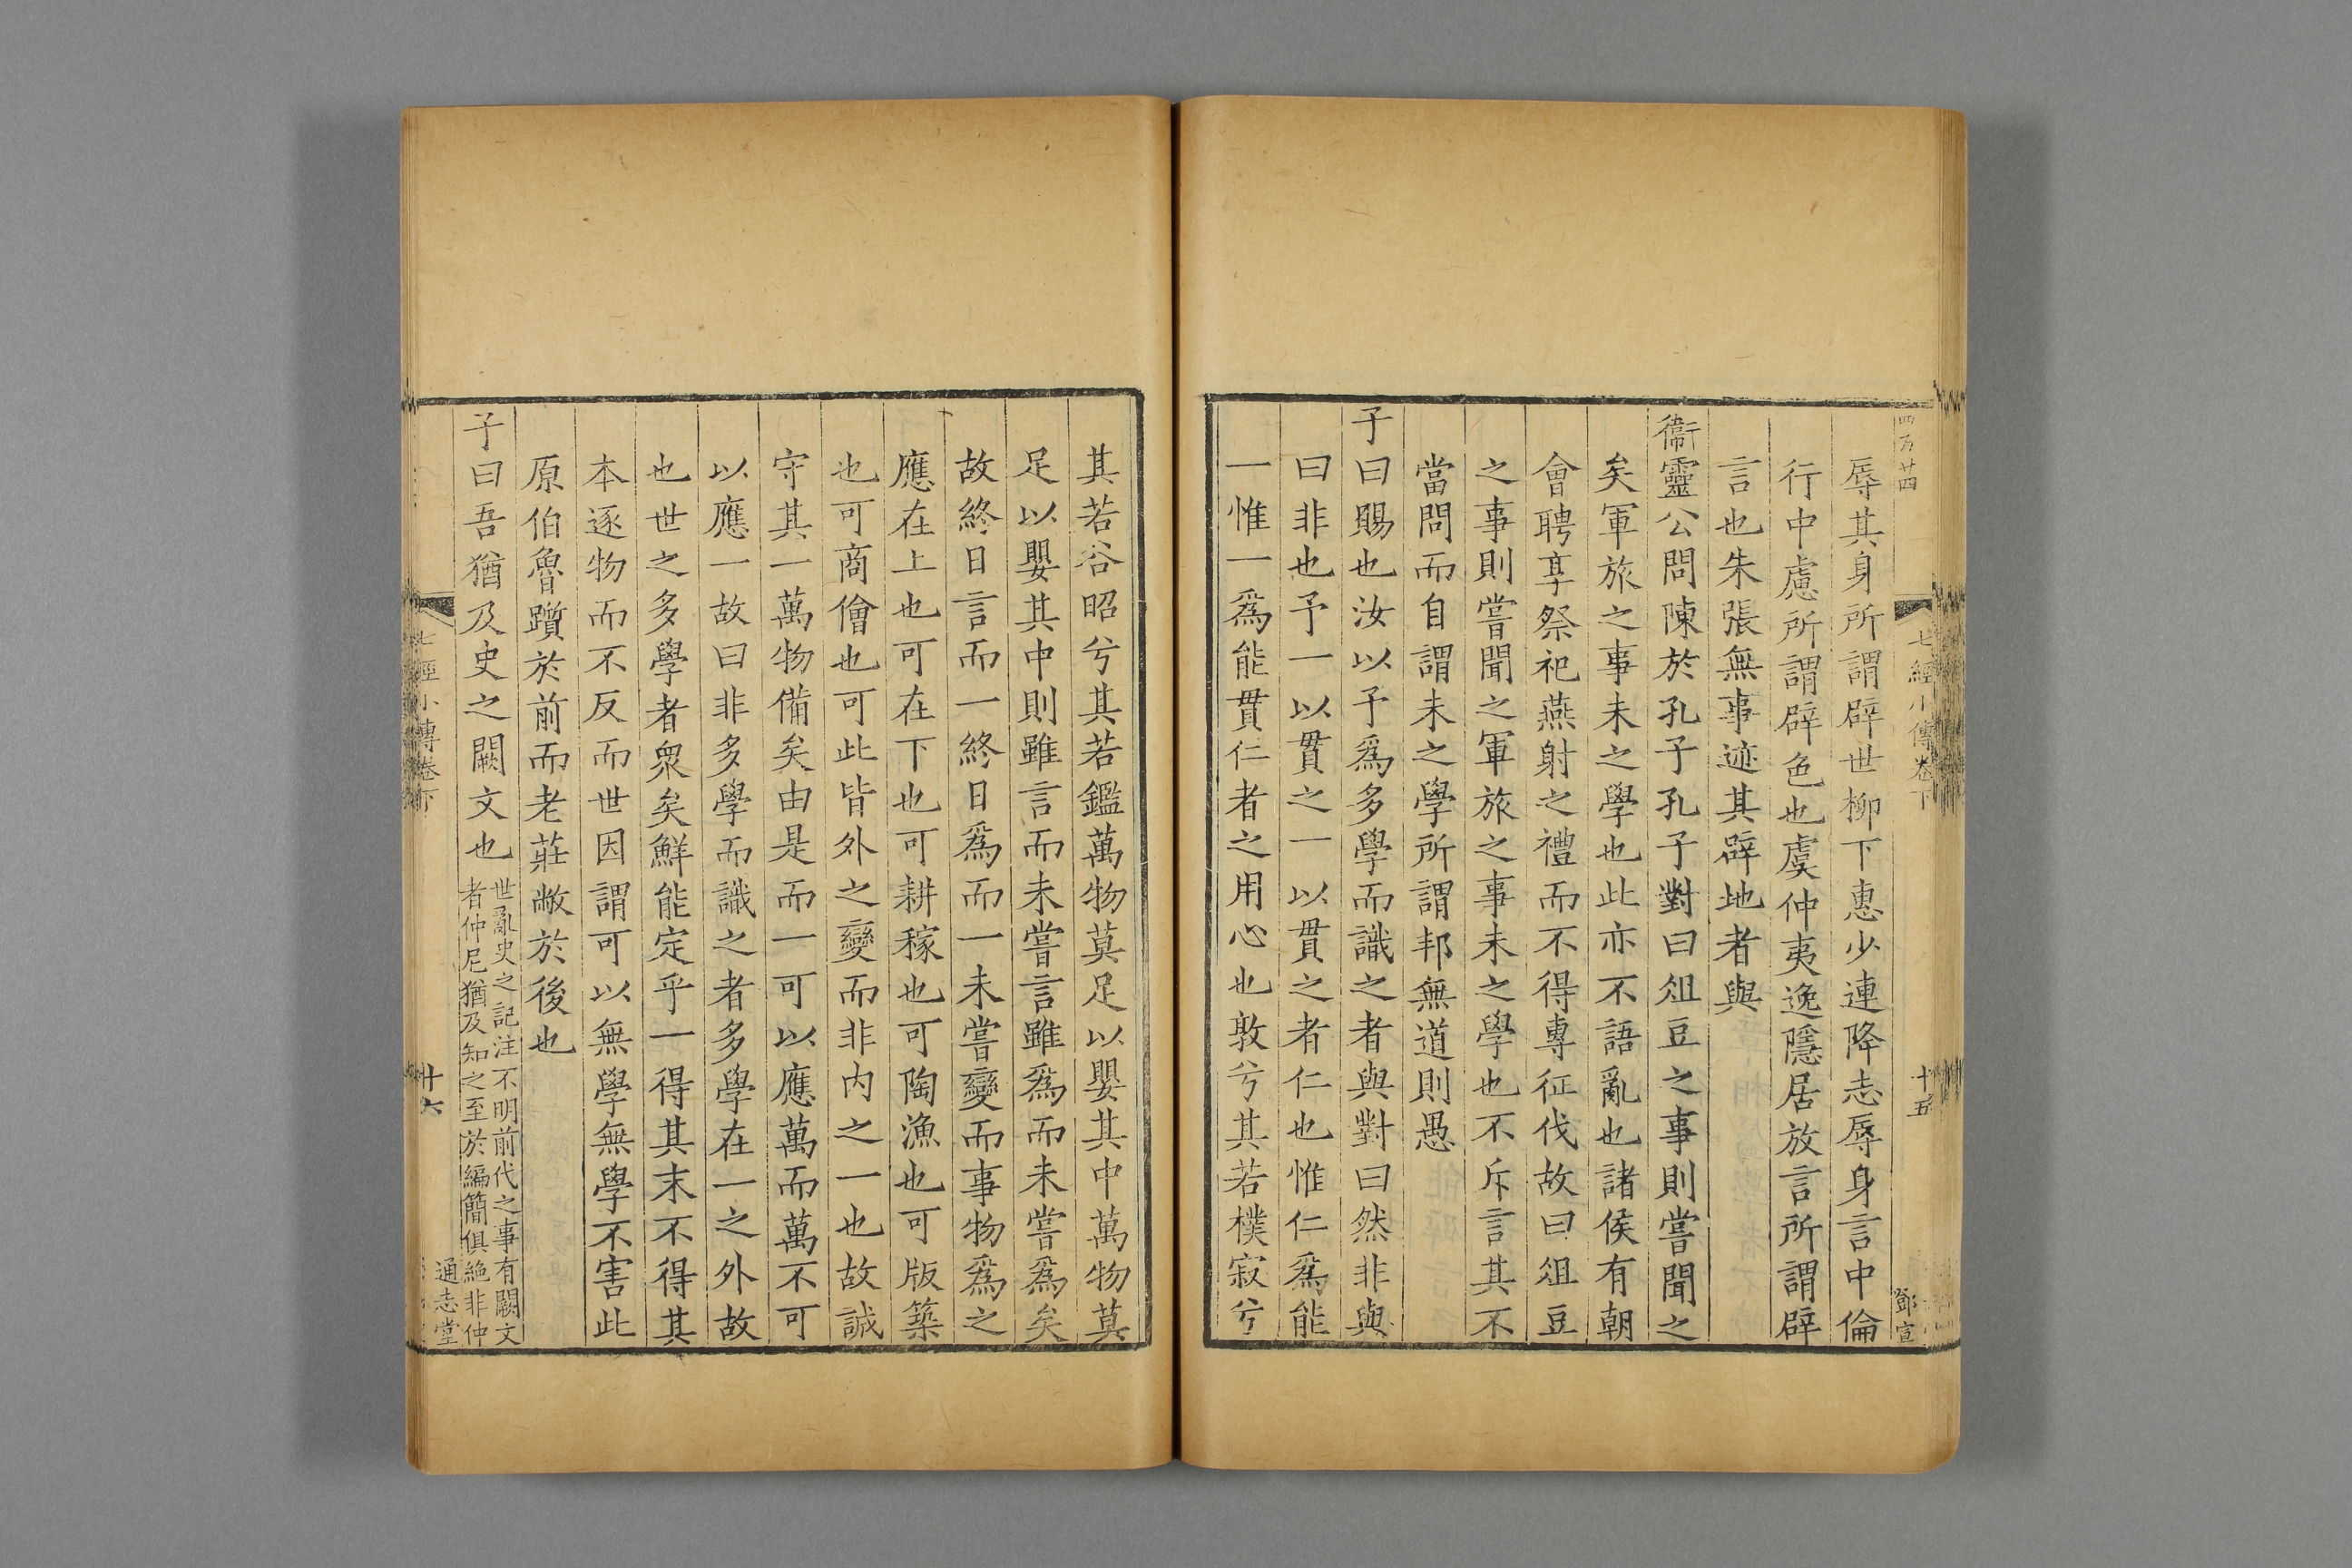 四百廿四
七經小傳卷下
十五
鄧宣
辱其身所謂辟世柳下惠少連降志辱身言中倫
行中慮所謂辟色也虞仲夷逸隱居放言所謂辟
言也朱張無事迹其辟地者與
衞靈公問陳於孔子孔子對曰俎豆之事則嘗聞之
矣軍旅之事未之學也此亦不語亂也諸侯有朝
會聘享祭祀燕射之禮而不得專征伐故曰俎豆
之事則嘗聞之軍旅之事未之學也不斥言其不
當問而自謂未之學所謂邦無道則愚
子曰賜也汝以予爲多學而識之者與對曰然非與
曰非也予一以貫之一以貫之者仁也惟仁爲能
一惟一爲能貫仁者之用心也敦兮其若樸寂兮
其若谷昭兮其若鑑萬物莫足以嬰其中萬物莫
足以嬰其中則雖言而未嘗言雖爲而未嘗爲矣
故終日言而一終日爲而一未嘗變而事物爲之
應在上也可在下也可耕稼也可陶漁也可版築
也可商儈也可此皆外之變而非内之一也故誠
守其一萬物備矣由是而一可以應萬而萬不可
以應一故曰非多學而識之者多學在一之外故
也世之多學者衆矣鮮能定乎一得其末不得其
本逐物而不反而世因謂可以無學無學不害此
原伯魯躓於前而老莊敝於後也
子曰吾猶及史之闕文也
世亂史之記注不明前代之事有闕文
者仲尼猶及知之至於編簡俱絶非仲
七經小傳卷下
十六
通志堂